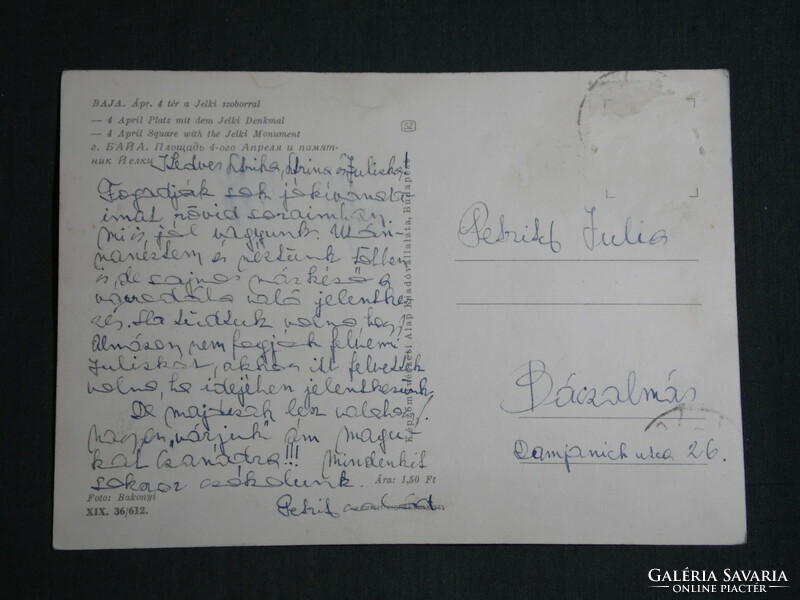 BAJA. Ápr. 4 tér a Jelki szoborral
— 4 April Platz mit dem Jelki Denkmal
— 4 April Square with the Jelki Monument
г. БАЙА. Площадь 4-ого Апреля и памят-
ник Йелки
Kedves Juliska!
Fogadják sok jókívánsá-
imat rövid soraimban
mi is jól vagyunk. Után-
nanéztem és néztünk
is, de sajnos már késő a
való jelentke-
zés. Ha tudtuk volna, hogy
Almáson nem fogják felvenni
Juliskát, akkor itt felvették
volna, ha idejében jelentkezünk.
De majd csak lesz valahogy!
Nagyon várjuk ám magu-
kat Csanádra!!! Mindenkit
sokszor csókolunk.
Petrik család
Ára: 1,50 Ft
Foto: Bakonyi
XIX. 36/612.
Képzőművészeti Alap Kiadóvállalata, Budapest
Julia
Bácsalmás
Damjanich utca 26.
GALÉRIA SAVARIA
ONLINE PIACTÉR